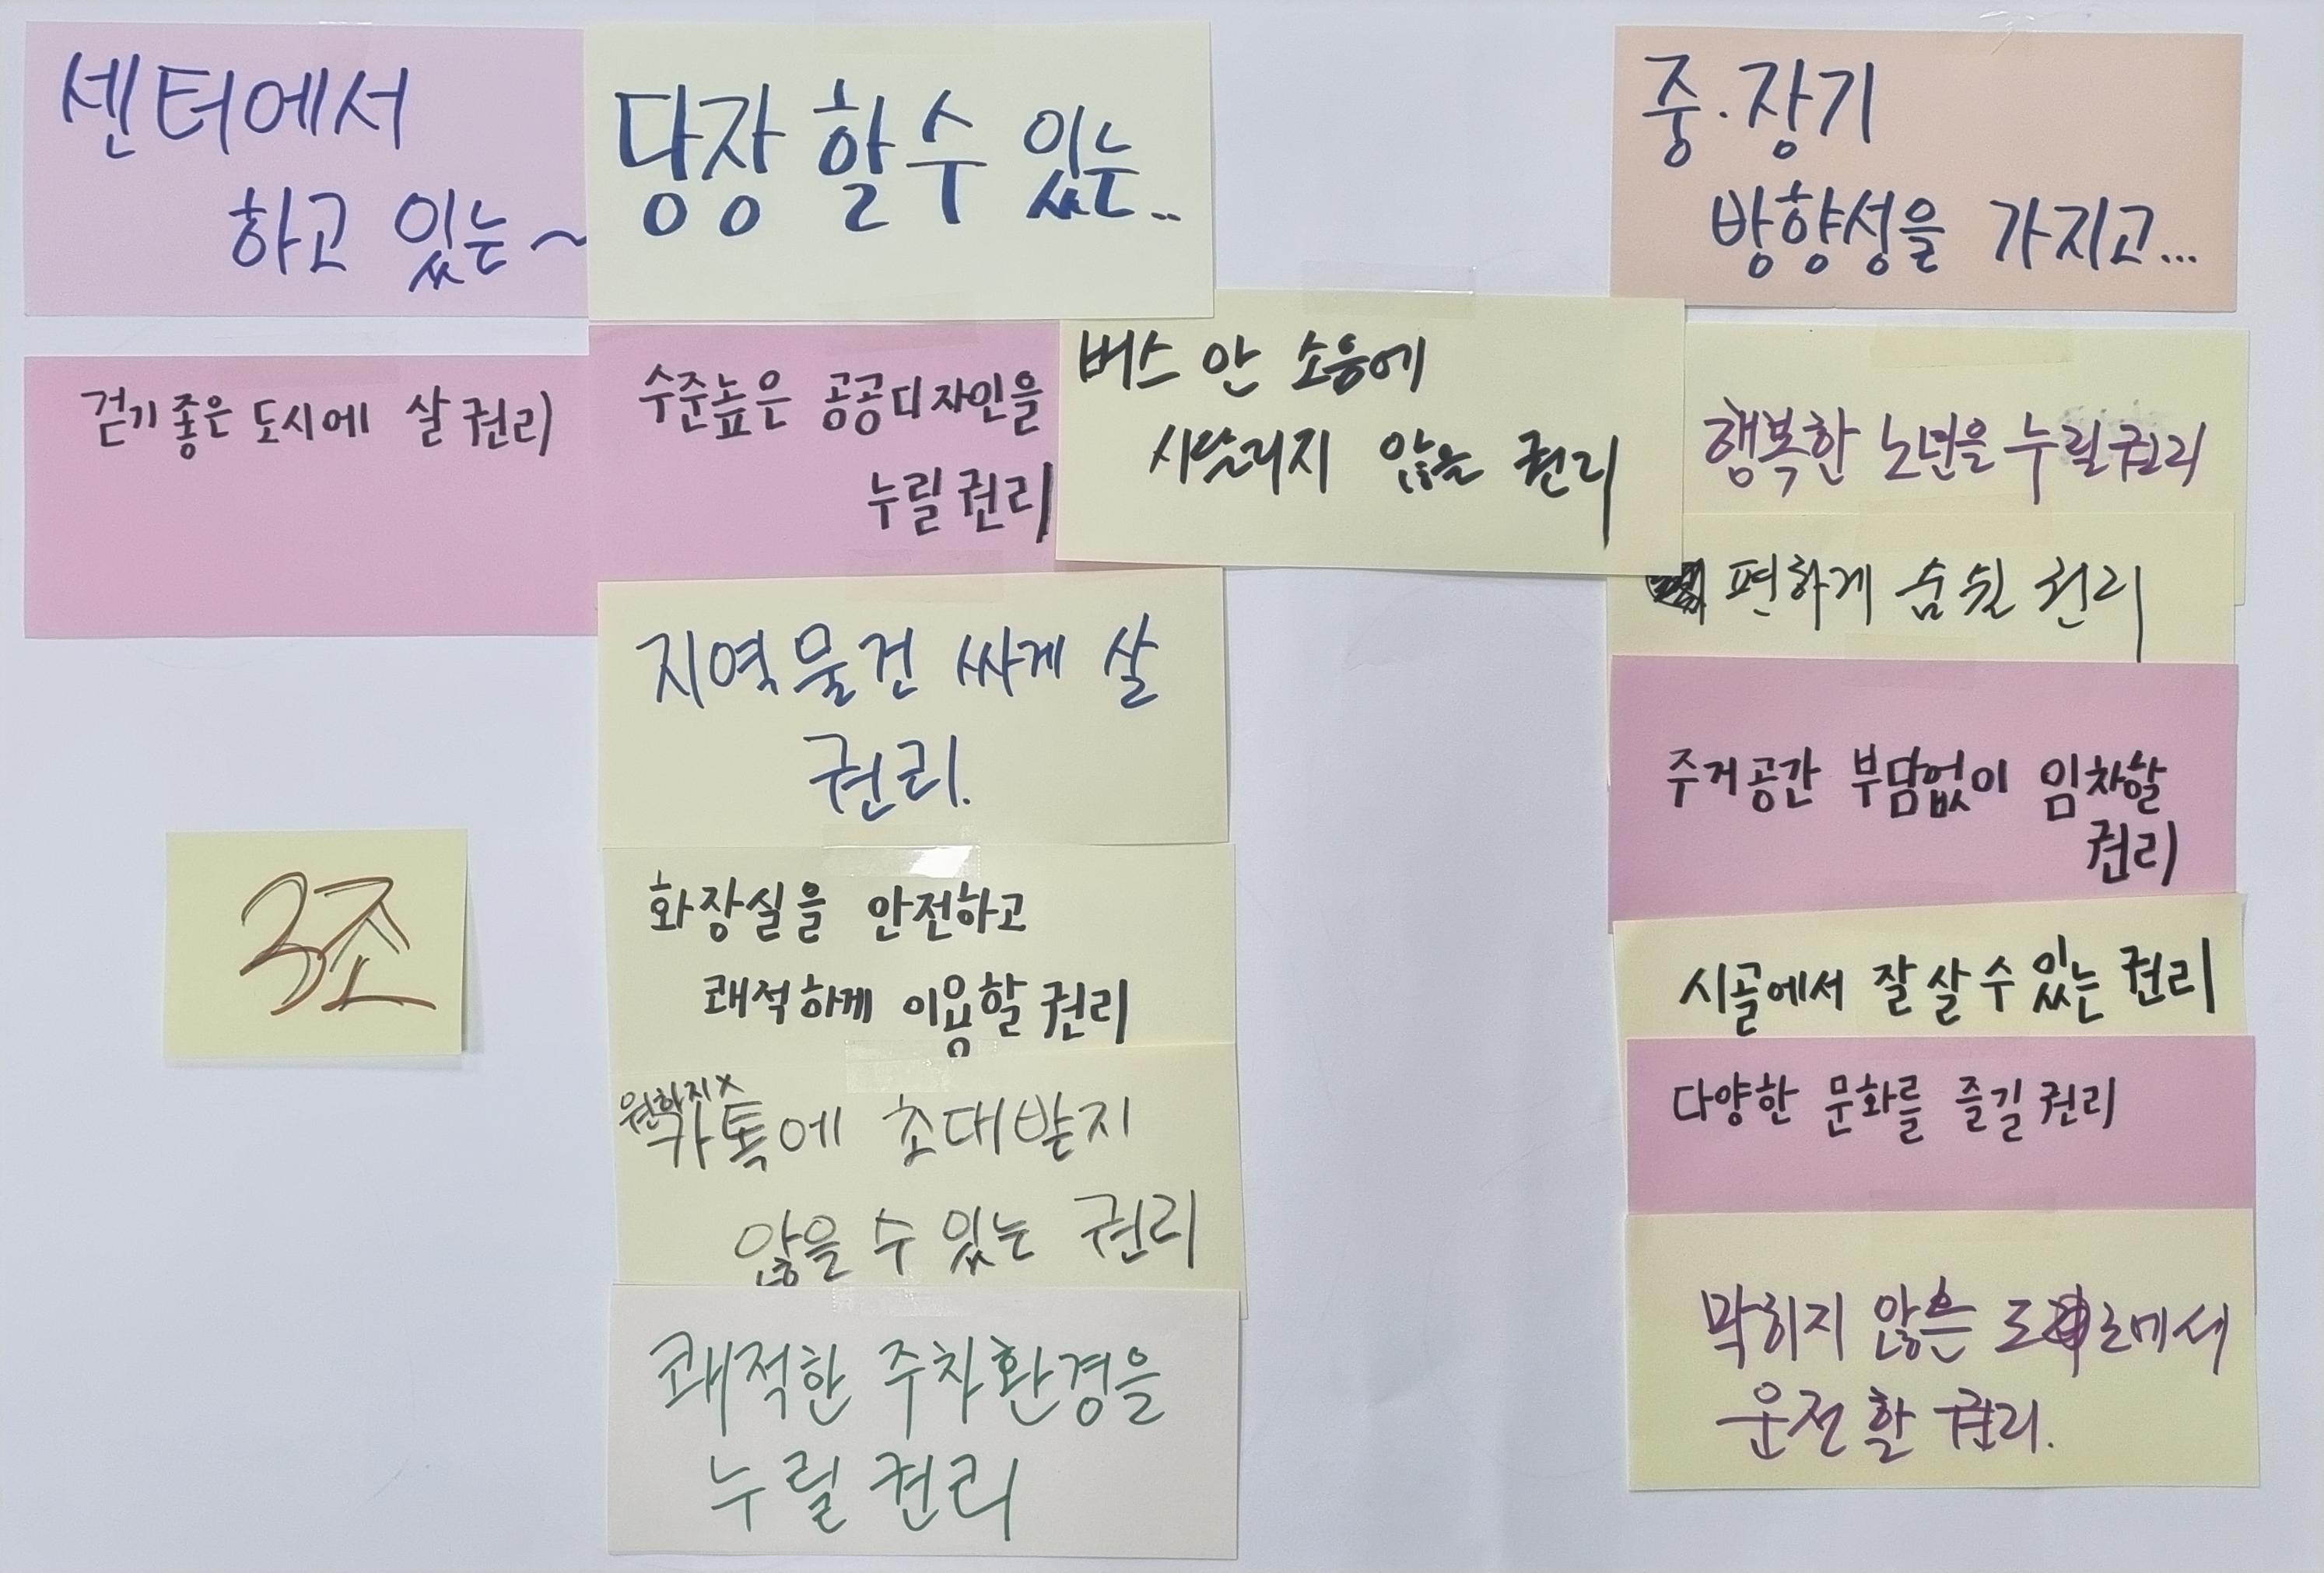 센터에서
하고 있는~
걷기 좋은 도시에 살 권리
3조
당장 할 수 있는..
수준높은 공공디자인을
누릴 권리
버스 안 소음에
시달리지 않는 권리
지역물건 싸게 살
권리.
화장실을 안전하고
쾌적하게 이용할 권리
원하지x
카톡에 초대받지
않을 수 있는 권리
쾌적한 주차환경을
누릴 권리
중·장기
방향성을 가지고...
행복한 노년을 누릴 권리
편하게 숨쉴 권리
주거공간 부담없이 임차할
권리
시골에서 잘 살 수 있는 권리
다양한 문화를 즐길 권리
막히지 않은 도로에서
운전할 권리.